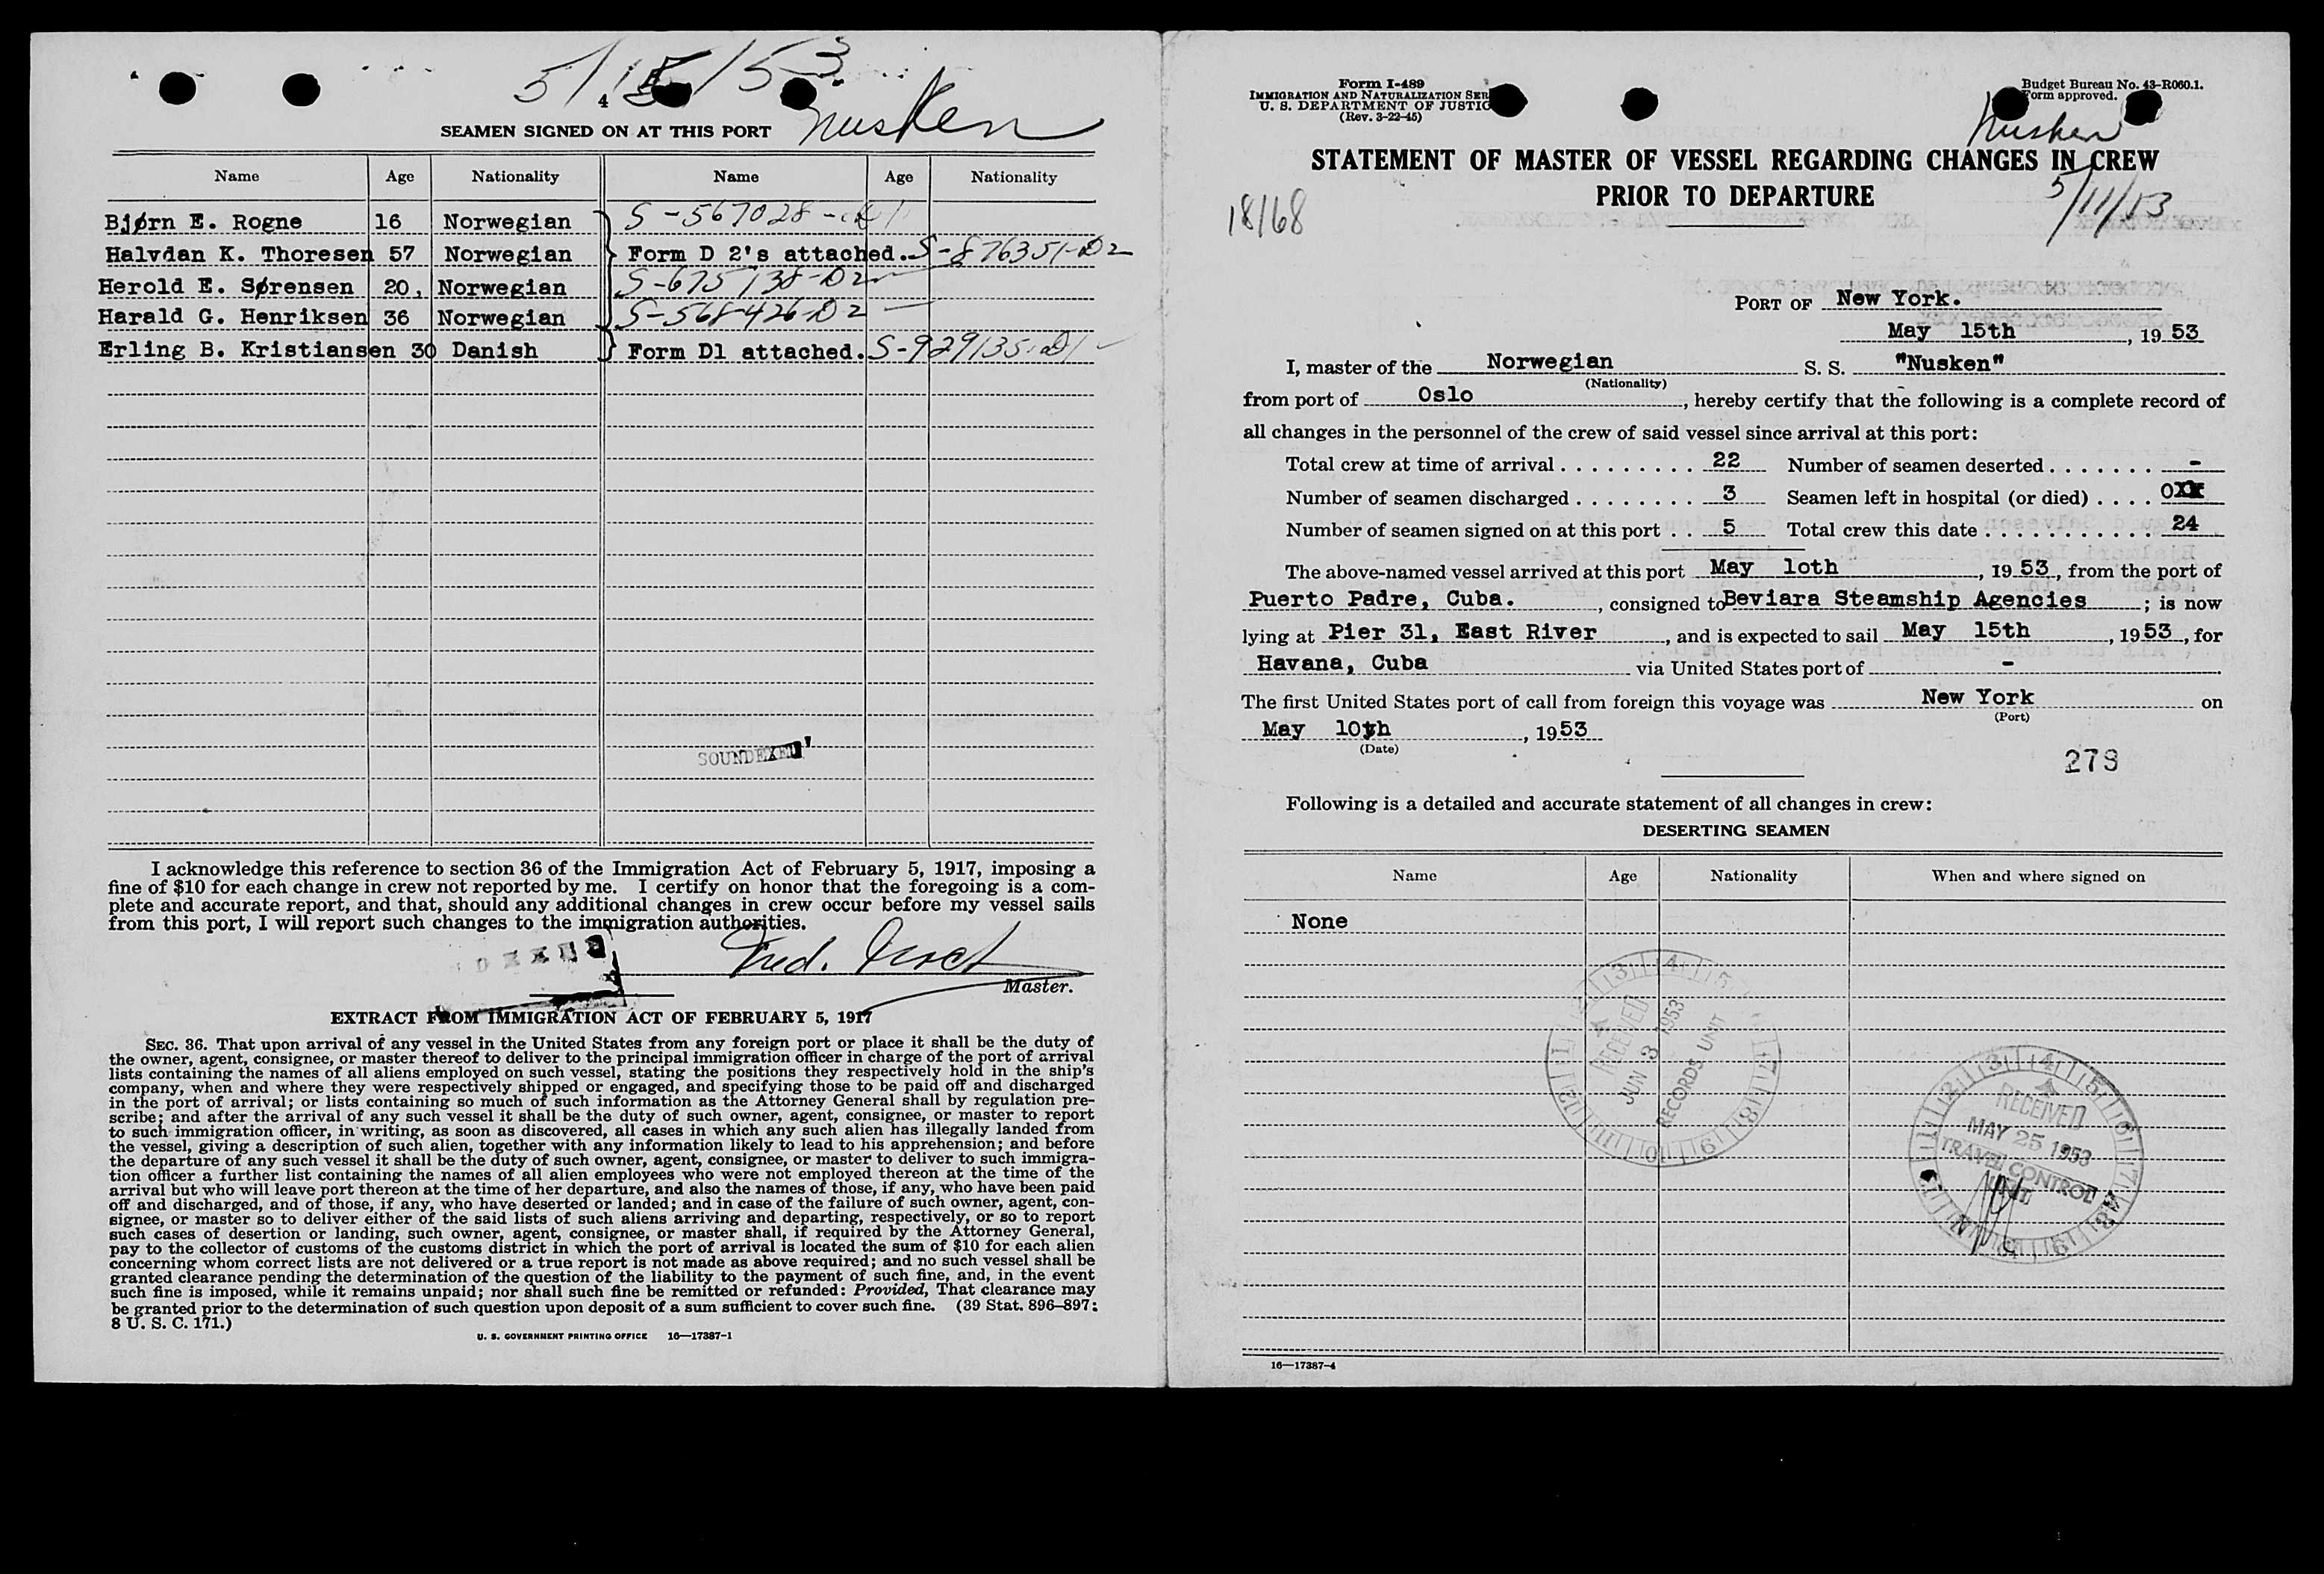 5/15/53
4
Nusken
SEAMEN SIGNED ON AT THIS PORT
Name Age Nationality Name Age Nationality
Bjørn E. Rogne 16 Norwegian S-567028-
Halvdan K. Thoresen 57 Norwegian Form D 2's attached. S-876351-D2
Herold E. Sørensen 20, Norwegian S-675138-D2
Harald G. Henriksen 36 Norwegian S-568426-D2
Erling B. Kristiansen 30 Danish Form D1 attached. S-929135-D1
SOUNDEXED
I acknowledge this reference to section 36 of the Immigration Act of February 5, 1917, imposing a
fine of $10 for each change in crew not reported by me. I certify on honor that the foregoing is a com-
plete and accurate report, and that, should any additional changes in crew occur before my vessel sails
from this port, I will report such changes to the immigration authorities.
Master.
EXTRACT FROM IMMIGRATION ACT OF FEBRUARY 5, 1917
SEC. 36. That upon arrival of any vessel in the United States from any foreign port or place it shall be the duty of
the owner, agent, consignee, or master thereof to deliver to the principal immigration officer in charge of the port of arrival
lists containing the names of all aliens employed on such vessel, stating the positions they respectively hold in the ship's
company, when and where they were respectively shipped or engaged, and specifying those to be paid off and discharged
in the port of arrival; or lists containing so much of such information as the Attorney General shall by regulation pre-
scribe; and after the arrival of any such vessel it shall be the duty of such owner, agent, consignee, or master to report
to such immigration officer, in writing, as soon as discovered, all cases in which any such alien has illegally landed from
the vessel, giving a description of such alien, together with any information likely to lead to his apprehension; and before
the departure of any such vessel it shall be the duty of such owner, agent, consignee, or master to deliver to such immigra-
tion officer a further list containing the names of all alien employees who were not employed thereon at the time of the
arrival but who will leave port thereon at the time of her departure, and also the names of those, if any, who have been paid
off and discharged, and of those, if any, who have deserted or landed; and in case of the failure of such owner, agent, con-
signee, or master so to deliver either of the said lists of such aliens arriving and departing, respectively, or so to report
such cases of desertion or landing, such owner, agent, consignee, or master shall, if required by the Attorney General,
pay to the collector of customs of the customs district in which the port of arrival is located the sum of $10 for each alien
concerning whom correct lists are not delivered or a true report is not made as above required; and no such vessel shall be
granted clearance pending the determination of the question of the liability to the payment of such fine, and, in the event
such fine is imposed, while it remains unpaid; nor shall such fine be remitted or refunded: Provided, That clearance may
be granted prior to the determination of such question upon deposit of a sum sufficient to cover such fine. (39 Stat. 896–897;
8 U. S. C. 171.)
U. S. GOVERNMENT PRINTING OFFICE 16—17387-1
Form I-489
IMMIGRATION AND NATURALIZATION SER
U. S. DEPARTMENT OF JUSTIC
(Rev. 3-22-45)
Budget Bureau No. 43-R060.1.
Form approved.
Nusken
STATEMENT OF MASTER OF VESSEL REGARDING CHANGES IN CREW
PRIOR TO DEPARTURE
5/11/53
18168
PORT OF New York.
May 15th, 1953
I, master of the Norwegian S. S. "Nusken"
(Nationality)
from port of Oslo, hereby certify that the following is a complete record of
all changes in the personnel of the crew of said vessel since arrival at this port:
Total crew at time of arrival . . . . . . . . . 22 Number of seamen deserted . . . . . . . -
Number of seamen discharged . . . . . . . . 3 Seamen left in hospital (or died) . . . . 0
Number of seamen signed on at this port . . 5 Total crew this date . . . . . . . . . . . 24
The above-named vessel arrived at this port May loth, 1953, from the port of
Puerto Padre, Cuba., consigned to Beviara Steamship Agencies; is now
lying at Pier 31, East River, and is expected to sail May 15th, 1953, for
Havana, Cuba via United States port of -
The first United States port of call from foreign this voyage was New York on
(Port)
May 10th, 1953
(Date)
279
Following is a detailed and accurate statement of all changes in crew:
DESERTING SEAMEN
Name Age Nationality When and where signed on
None
RECEIVED
JUN 3 1953
RECORDS UNIT
RECEIVED
MAY 25 1953
TRAVEL CONTROL
UNIT
16—17387-4